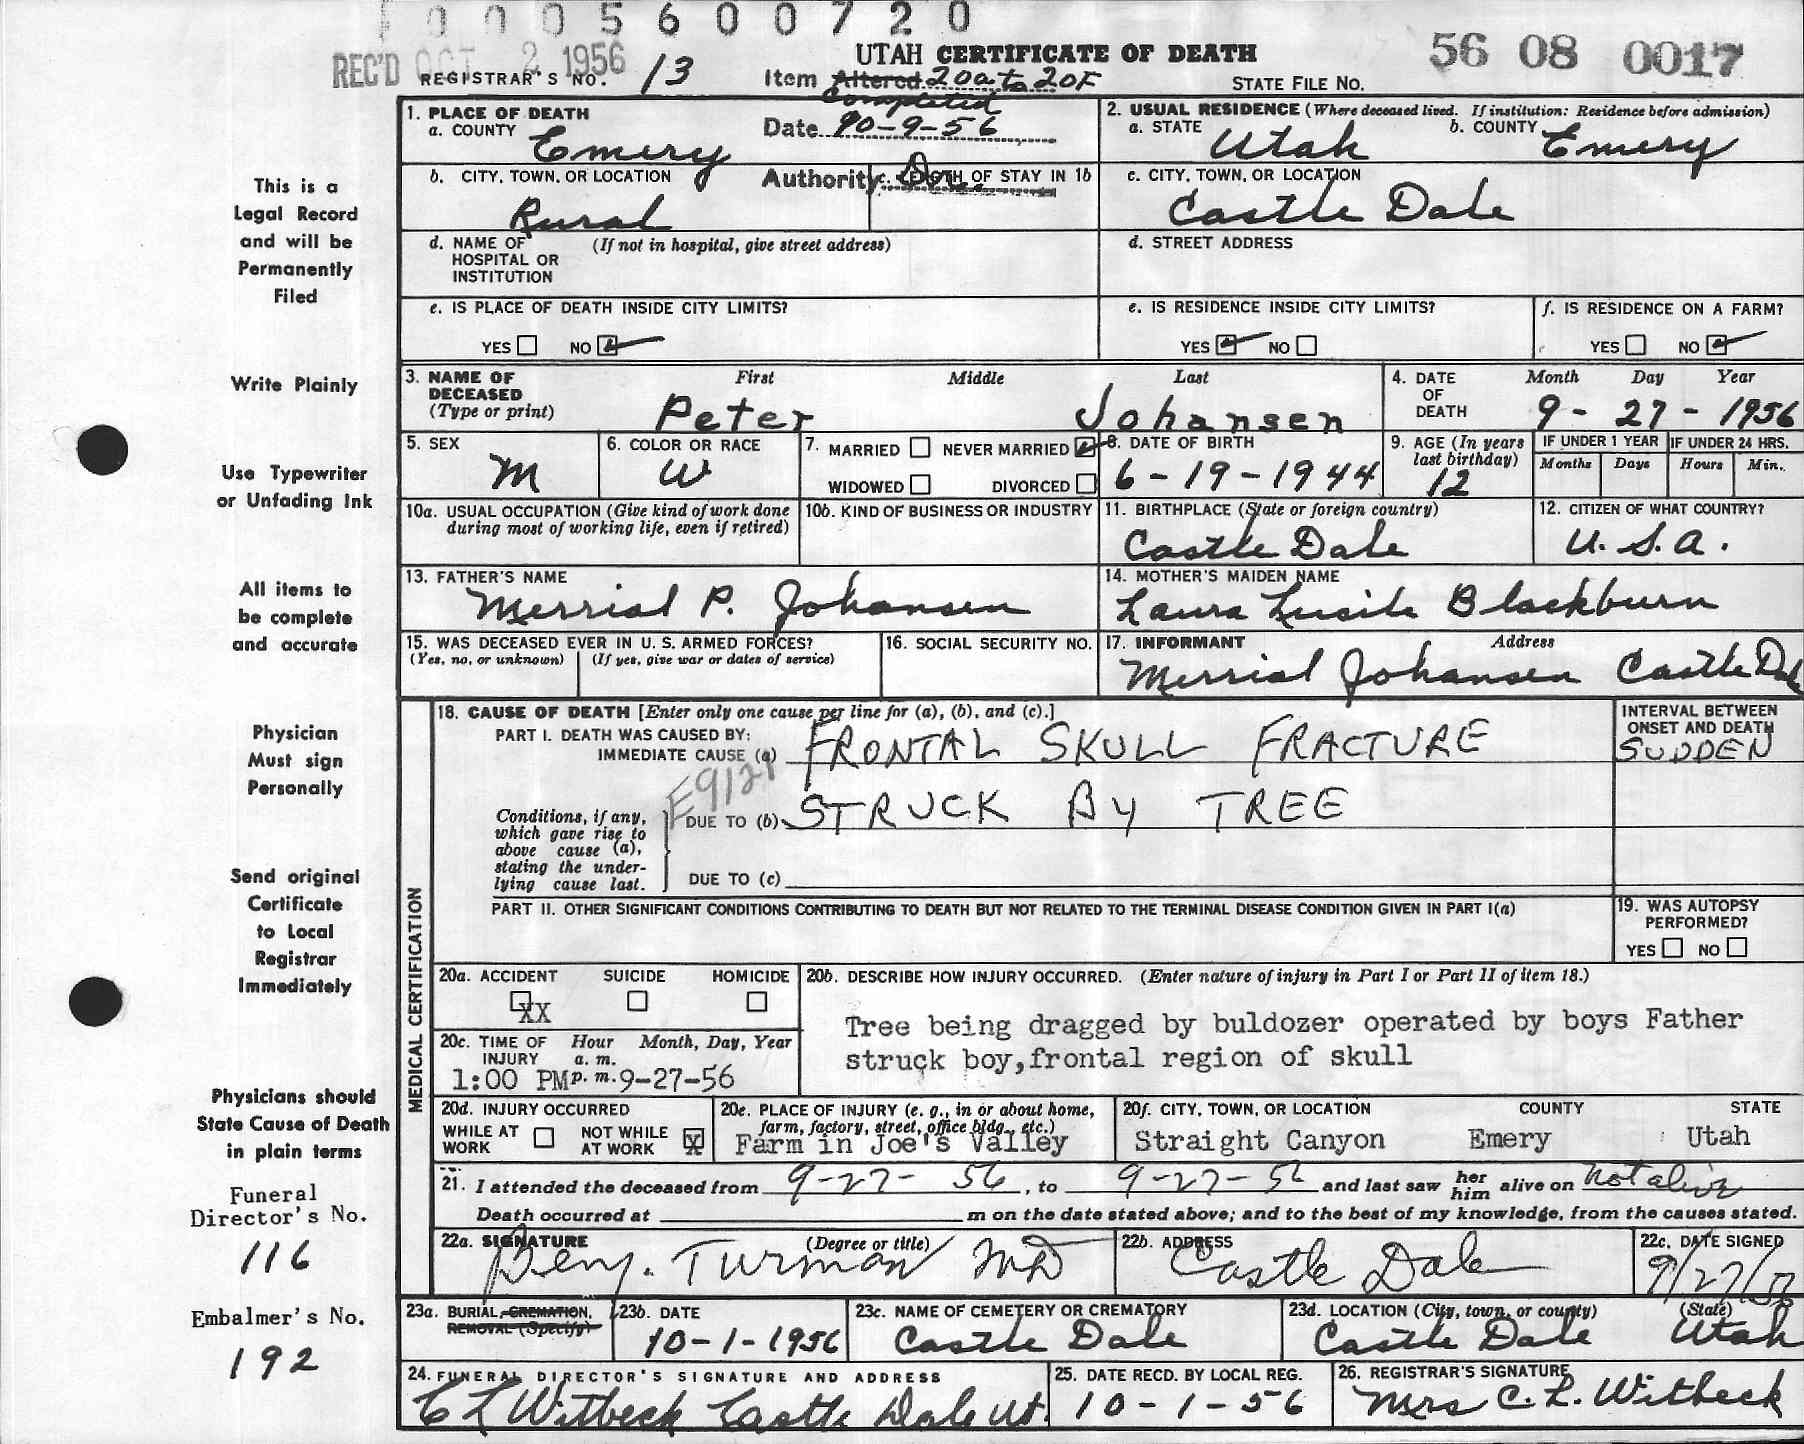 0005600720
REC'D OCT 2 1956
REGISTRAR'S NO. 13
UTAH CERTIFICATE OF DEATH
Item Altered 20a to 20F
Completed
STATE FILE NO.
56 08 0017
Date 10-9-56
Authority Dr.
This is a
Legal Record
and will be
Permanently
Filed
Write Plainly
Use Typewriter
or Unfading Ink
All items to
be complete
and accurate
Physician
Must sign
Personally
Send original
Certificate
to Local
Registrar
Immediately
Physicians should
State Cause of Death
in plain terms
Funeral
Director's No.
116
Embalmer's No.
192
1. PLACE OF DEATH
a. COUNTY Emery
2. USUAL RESIDENCE (Where deceased lived. If institution: Residence before admission)
a. STATE Utah b. COUNTY Emery
b. CITY, TOWN, OR LOCATION Rural
c. LENGTH OF STAY IN 1b
c. CITY, TOWN, OR LOCATION
Castle Dale
d. NAME OF (If not in hospital, give street address)
HOSPITAL OR
INSTITUTION
d. STREET ADDRESS
e. IS PLACE OF DEATH INSIDE CITY LIMITS?
YES NO
e. IS RESIDENCE INSIDE CITY LIMITS?
YES NO
f. IS RESIDENCE ON A FARM?
YES NO
3. NAME OF First Middle Last
DECEASED
(Type or print) Peter Johansen
4. DATE Month Day Year
OF
DEATH 9 - 27 - 1956
5. SEX
M
6. COLOR OR RACE
W
7. MARRIED NEVER MARRIED
WIDOWED DIVORCED
8. DATE OF BIRTH
6 - 19 - 1944
9. AGE (In years
last birthday)
12
IF UNDER 1 YEAR IF UNDER 24 HRS.
Months Days Hours Min.
10a. USUAL OCCUPATION (Give kind of work done
during most of working life, even if retired)
10b. KIND OF BUSINESS OR INDUSTRY
11. BIRTHPLACE (State or foreign country)
Castle Dale
12. CITIZEN OF WHAT COUNTRY?
U. S. A.
13. FATHER'S NAME
Merrial P. Johansen
14. MOTHER'S MAIDEN NAME
Laura Lusile Blackburn
15. WAS DECEASED EVER IN U. S. ARMED FORCES?
(Yes, no, or unknown) (If yes, give war or dates of service)
16. SOCIAL SECURITY NO.
17. INFORMANT Address
Merrial Johansen Castle Dale
MEDICAL CERTIFICATION
18. CAUSE OF DEATH [Enter only one cause per line for (a), (b), and (c).]
PART I. DEATH WAS CAUSED BY:
IMMEDIATE CAUSE (a) FRONTAL SKULL FRACTURE
INTERVAL BETWEEN
ONSET AND DEATH
SUDDEN
Conditions, if any,
which gave rise to
above cause (a),
stating the under-
lying cause last.
DUE TO (b) STRUCK BY TREE
DUE TO (c)
PART II. OTHER SIGNIFICANT CONDITIONS CONTRIBUTING TO DEATH BUT NOT RELATED TO THE TERMINAL DISEASE CONDITION GIVEN IN PART I(a)
19. WAS AUTOPSY
PERFORMED?
YES NO
20a. ACCIDENT SUICIDE HOMICIDE
XX
20b. DESCRIBE HOW INJURY OCCURRED. (Enter nature of injury in Part I or Part II of item 18.)
Tree being dragged by buldozer operated by boys Father
struck boy,frontal region of skull
20c. TIME OF Hour Month, Day, Year
INJURY a. m.
1:00 PM p. m. 9-27-56
20d. INJURY OCCURRED
WHILE AT NOT WHILE X
WORK AT WORK
20e. PLACE OF INJURY (e. g., in or about home,
farm, factory, street, office bldg., etc.)
Farm in Joe's Valley
20f. CITY, TOWN, OR LOCATION COUNTY STATE
Straight Canyon Emery Utah
21. I attended the deceased from 9-27- 56, to 9-27-56 and last saw her him alive on not alive
Death occurred at m on the date stated above; and to the best of my knowledge, from the causes stated.
22a. SIGNATURE (Degree or title)
Benj. Turman MD
22b. ADDRESS
Castle Dale
22c. DATE SIGNED
9/27/56
23a. BURIAL, CREMATION,
REMOVAL (Specify)
23b. DATE
10-1-1956
23c. NAME OF CEMETERY OR CREMATORY
Castle Dale
23d. LOCATION (City, town, or county) (State)
Castle Dale Utah
24. FUNERAL DIRECTOR'S SIGNATURE AND ADDRESS
C L Witbeck Castle Dale Ut.
25. DATE RECD. BY LOCAL REG.
10-1-56
26. REGISTRAR'S SIGNATURE
Mrs C. L. Witbeck